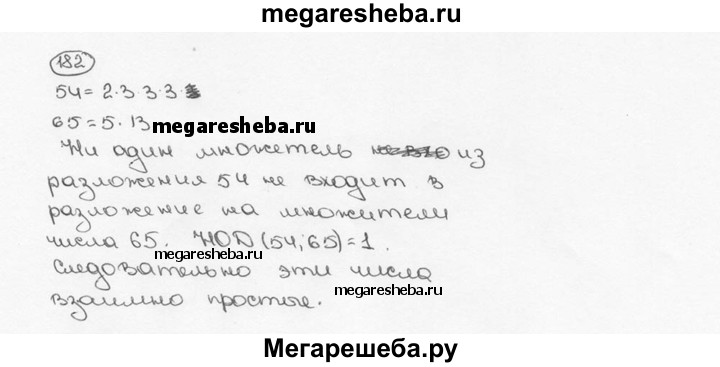 megaresheba.ru
182
54 = 2·3·3·3·
65 = 5·13
megaresheba.ru
Ни один множетель из
разложения 54 не входит в
разложение на множители
числа 65. НОД (54; 65) = 1.
megaresheba.ru
Следовательно эти числа
взаимно простые.
megaresheba.ru
Мегарешеба.ру